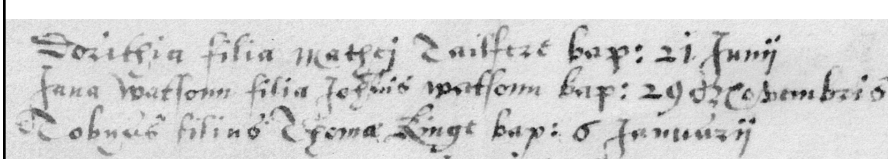 Dorithia filia Mathej Tailfere bap: 21 Junij
Jana Watsonn filia Johnis Watsonn bap: 29 Novembris
Tobyas filius Thomæ Kinge bap: 6 Januarij